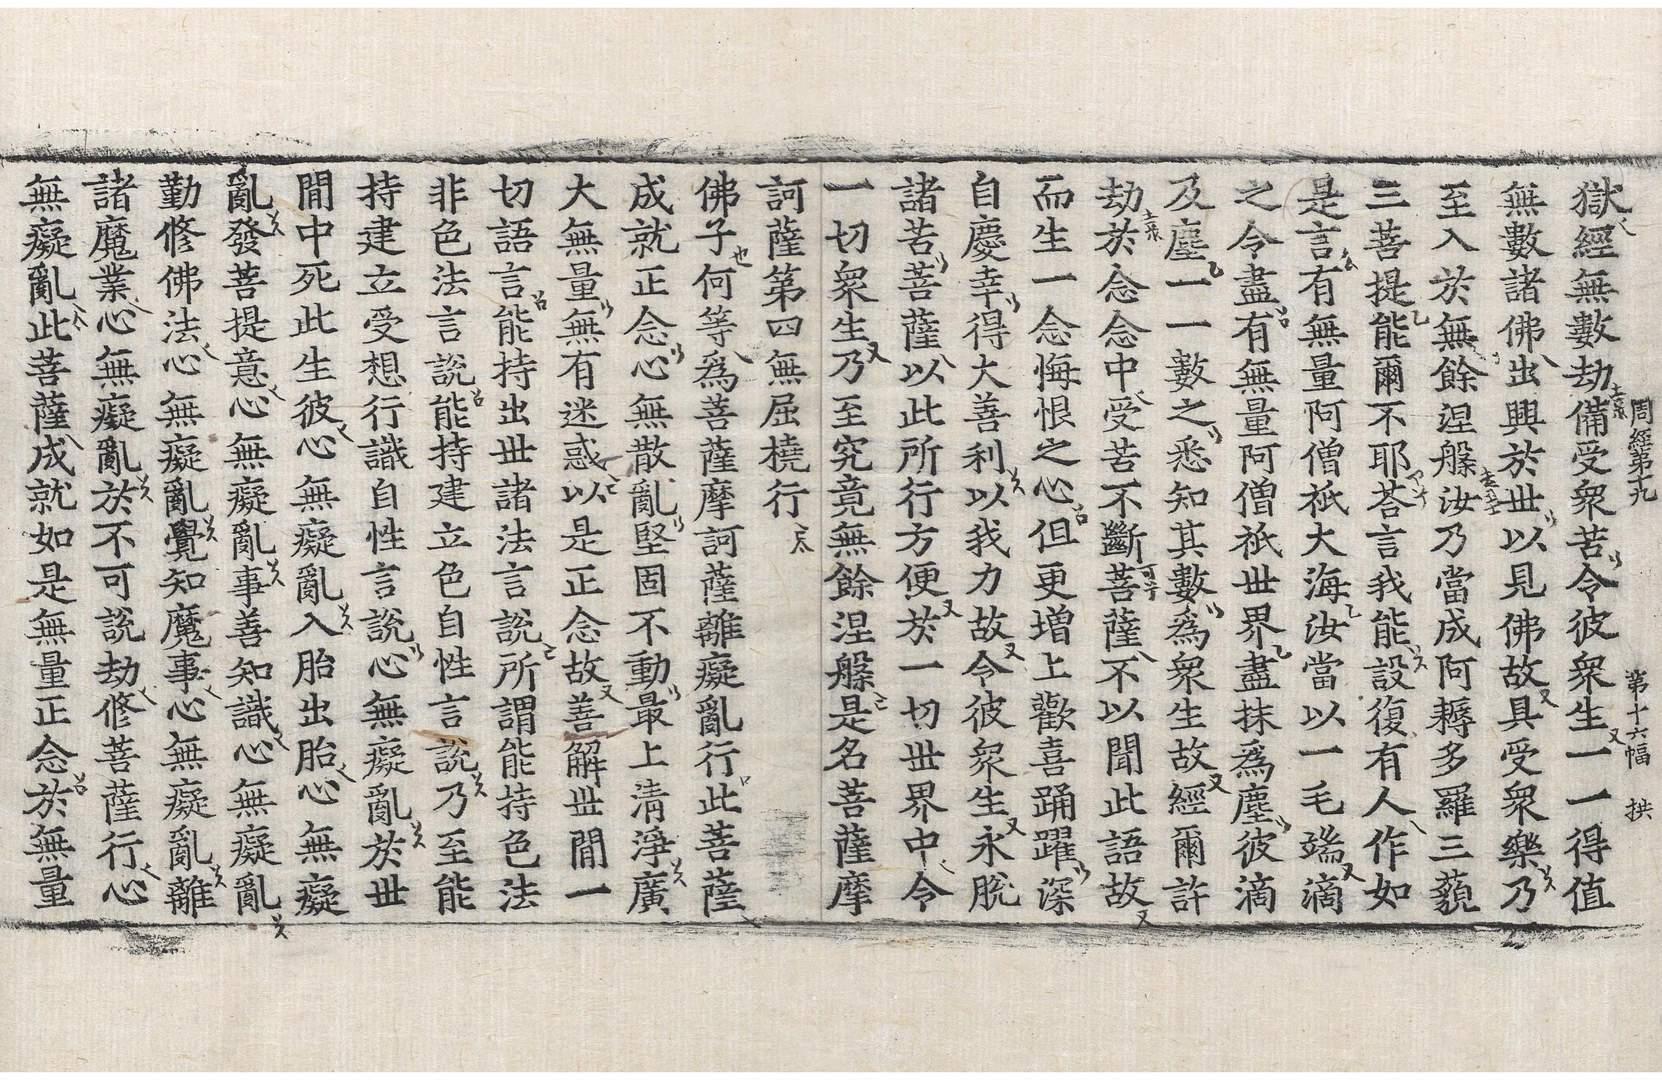 周經第十九　第十六幅　拱
獄經無數劫備受衆苦令彼衆生一一得值
無數諸佛出興於世以見佛故具受衆樂乃
至入於無餘涅槃汝乃當成阿耨多羅三藐
三菩提能爾不耶荅言我能設復有人作如
是言有無量阿僧祇大海汝當以一毛端滴
之令盡有無量阿僧祇世界盡抹爲塵彼滴
及塵一一數之悉知其數爲衆生故經爾許
劫於念念中受苦不斷菩薩不以聞此語故
而生一念悔恨之心但更增上歡喜踊躍深
自慶幸得大善利以我力故令彼衆生永脫
諸苦菩薩以此所行方便於一切世界中令
一切衆生乃至究竟無餘涅槃是名菩薩摩
訶薩第四無屈橈行
佛子何等爲菩薩摩訶薩離癡亂行此菩薩
成就正念心無散亂堅固不動最上清淨廣
大無量無有迷惑以是正念故善解世間一
切語言能持出世諸法言說所謂能持色法
非色法言說能持建立色自性言說乃至能
持建立受想行識自性言說心無癡亂於世
間中死此生彼心無癡亂入胎出胎心無癡
亂發菩提意心無癡亂事善知識心無癡亂
勤修佛法心無癡亂覺知魔事心無癡亂離
諸魔業心無癡亂於不可說劫修菩薩行心
無癡亂此菩薩成就如是無量正念於無量